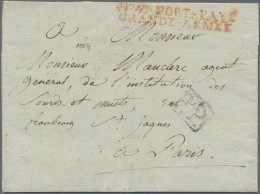 PORT-PAYÉ
GRANDE-ARMÉE
à Monsieur
Monsieur Mauclerc agent
général, de l'institution des
Sourds et muets, rue
faubourg St jaques
à Paris.